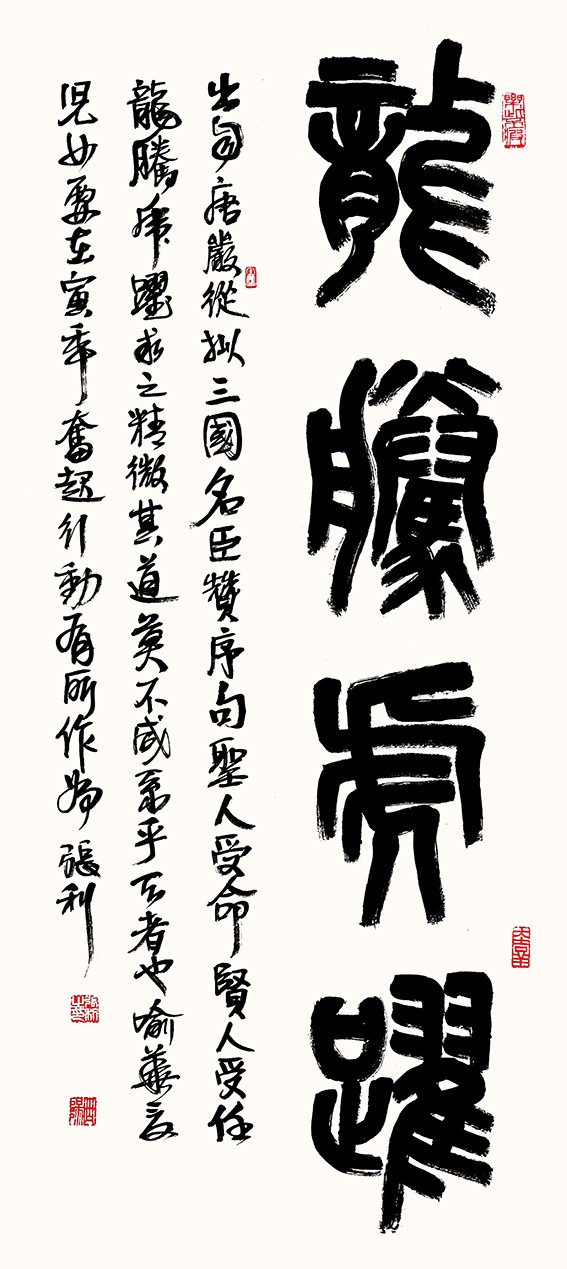 龍騰虎躍
出自唐嚴從擬三國名臣贊序句聖人受命賢人受任
龍騰虎躍求之精微其道莫不咸系乎天者也喻華夏
兒女要在寅年奮起行動有所作為張利